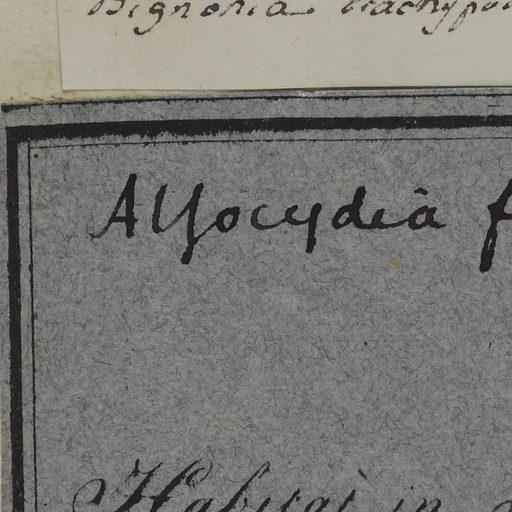 Bignonia trachypo
Allocydiâ f
Habitat in